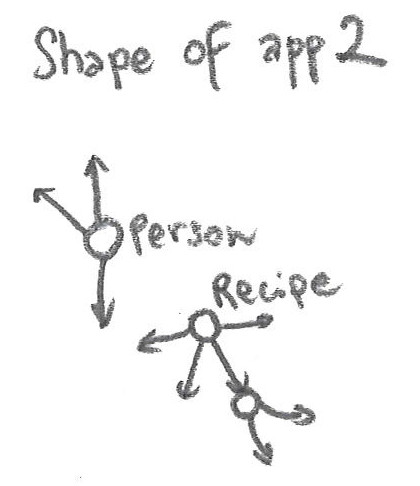 Shape of app 2
Person
Recipe